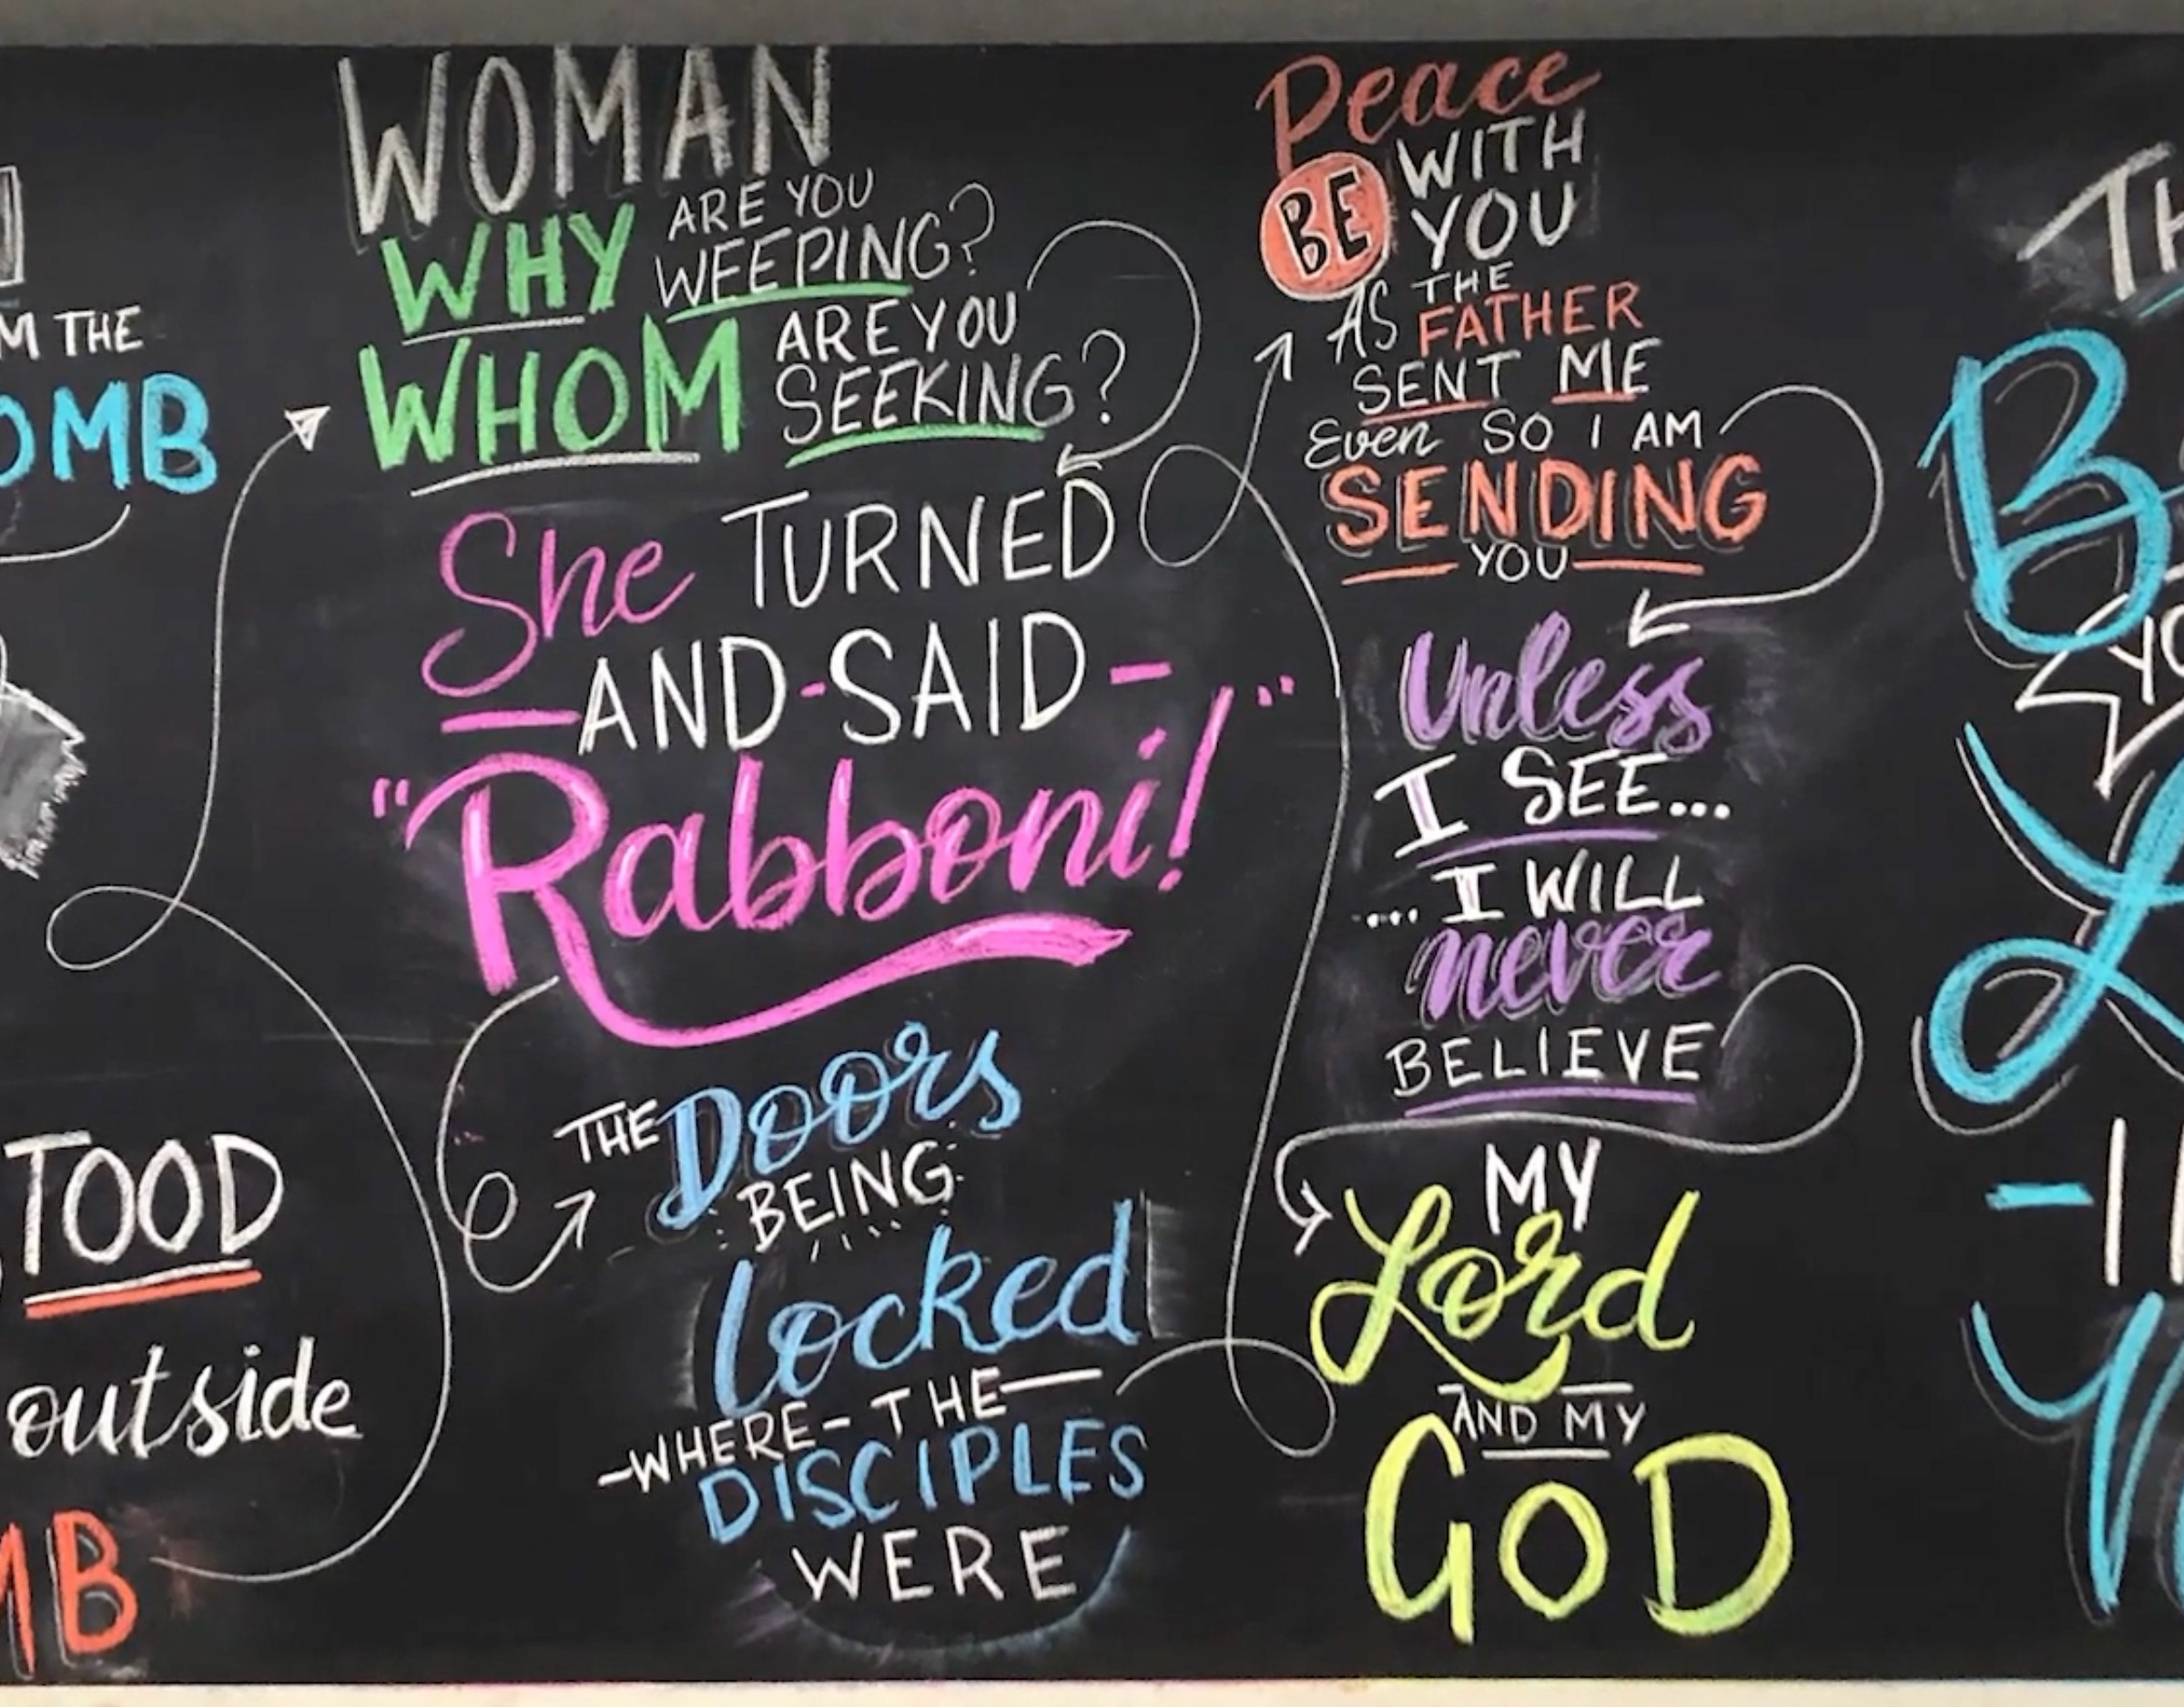 M THE
OMB
TOOD
outside
MB
WOMAN
WHY ARE YOU
WEEPING?
WHOM ARE YOU
SEEKING?
She TURNED
-AND-SAID-
"Rabboni!"
THE Doors
BEING
Locked
-WHERE-THE-
DISCIPLES
WERE
Peace
BE WITH
YOU
AS THE
FATHER
SENT ME
Even SO I AM
SENDING
YOU
Unless
I SEE...
...I WILL
never
BELIEVE
MY
Lord
AND MY
GOD
TH
B
YO
L